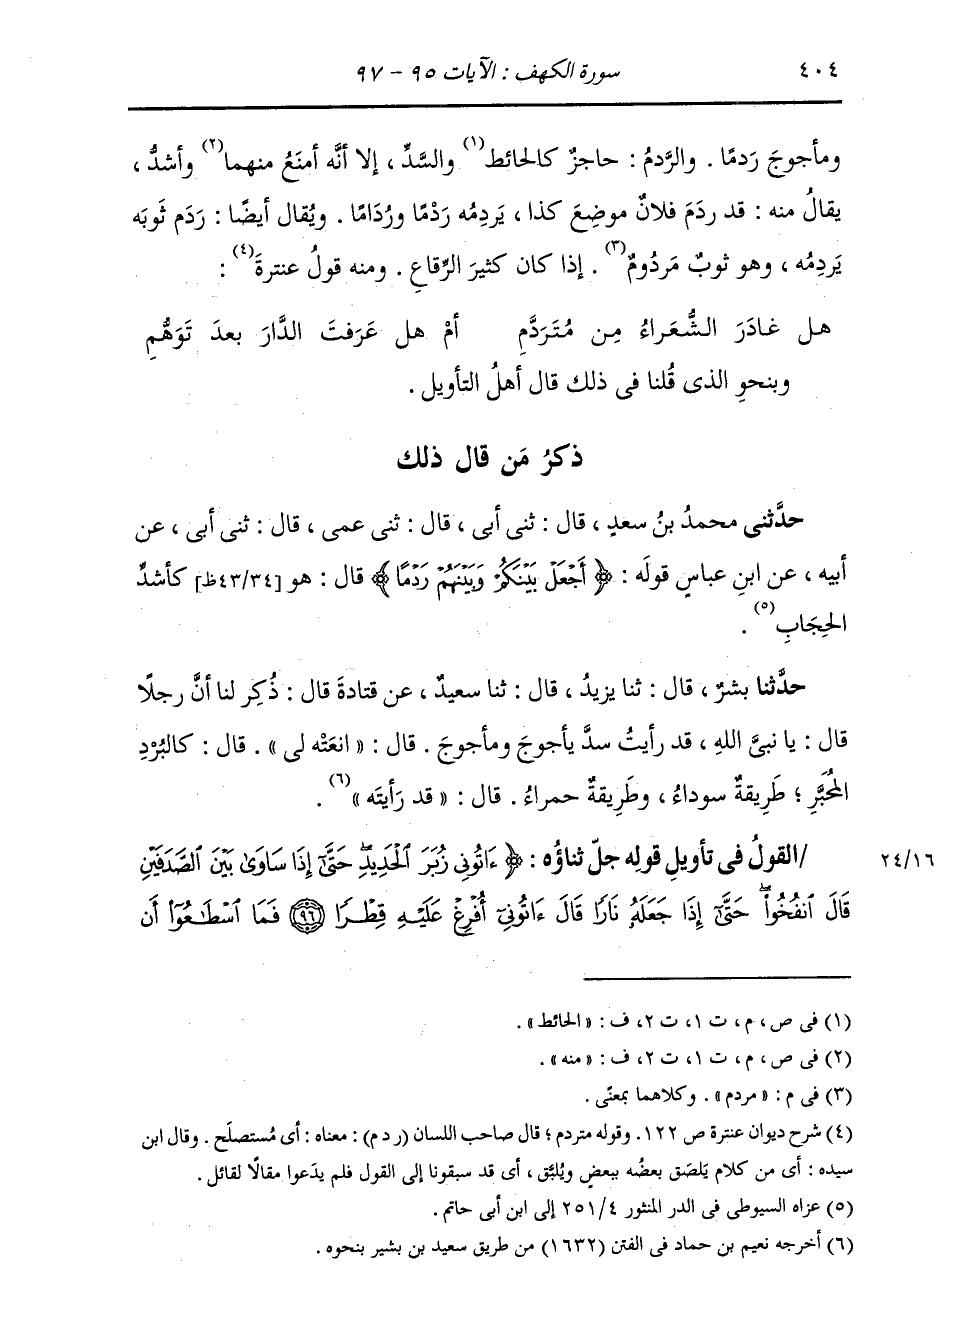 ٤٠٤ سورة الكهف : الآيات ٩٥ - ٩٧
ومأجوجَ رَدمًا . والرَّدمُ : حاجزٌ كالحائط(١) والسَّدِّ ، إلا أنَّه أمنَعُ منهما(٢) وأشدُّ ،
يقالُ منه : قد ردَمَ فلانٌ موضِعَ كذا ، يَردِمُه رَدْمًا ورُدَامًا . ويُقال أيضًا : رَدَم ثَوبَه
يَردِمُه ، وهو ثوبٌ مَردُومٌ(٣) . إذا كان كثيرَ الرِّقاعِ . ومنه قولُ عنترةَ(٤) :
هل غادَرَ الشُّعَراءُ مِن مُتَردَّمِ أمْ هل عَرَفتَ الدَّارَ بعدَ تَوَهُّمِ
وبنحوِ الذى قُلنا فى ذلك قال أهلُ التأويل .
ذكرُ مَن قال ذلك
حدَّثنى محمدُ بنُ سعدٍ ، قال : ثنى أبى ، قال : ثنى عمى ، قال : ثنى أبى ، عن
أبيه ، عن ابنِ عباسٍ قولَه : ﴿ أَجْعَلْ بَيْنَكُمْ وَبَيْنَهُمْ رَدْمًا ﴾ قال : هو [٤٣/٣٤ظ] كأشدِّ
الحِجَابِ(٥) .
حدَّثنا بشرٌ ، قال : ثنا يزيدُ ، قال : ثنا سعيدٌ ، عن قتادةَ قال : ذُكِر لنا أنَّ رجلًا
قال : يا نبىَّ اللهِ ، قد رأيتُ سدَّ يأجوجَ ومأجوجَ . قال : « انعَتْه لى » . قال : كالبُرْدِ
المُحَبَّرِ ؛ طَرِيقةٌ سوداءُ ، وطَرِيقةٌ حمراءُ . قال : « قد رَأيتَه »(٦) .
٢٤/١٦ /القولُ فى تأويلِ قولِه جلّ ثناؤُه : ﴿ ءَاتُونِى زُبَرَ ٱلْحَدِيدِۖ حَتَّىٰٓ إِذَا سَاوَىٰ بَيْنَ ٱلصَّدَفَيْنِ
قَالَ ٱنفُخُوا۟ۖ حَتَّىٰٓ إِذَا جَعَلَهُۥ نَارًا قَالَ ءَاتُونِىٓ أُفْرِغْ عَلَيْهِ قِطْرًا ﴿٩٦﴾ فَمَا ٱسْطَـٰعُوٓا۟ أَن
(١) فى ص ، م ، ت ١ ، ت ٢ ، ف : « الحائط » .
(٢) فى ص ، م ، ت ١ ، ت ٢ ، ف : « منه » .
(٣) فى م : « مردم » . وكلاهما بمعنًى .
(٤) شرح ديوان عنترة ص ١٢٢. وقوله متردم ؛ قال صاحب اللسان (ر د م) : معناه : أى مُستصلَح . وقال ابن
سيده : أى من كلام يَلصَق بعضُه ببعضٍ ويُلبَّق ، أى قد سبقونا إلى القول فلم يدَعوا مقالًا لقائل .
(٥) عزاه السيوطى فى الدر المنثور ٢٥١/٤ إلى ابن أبى حاتم .
(٦) أخرجه نعيم بن حماد فى الفتن (١٦٣٢) من طريق سعيد بن بشير بنحوه .